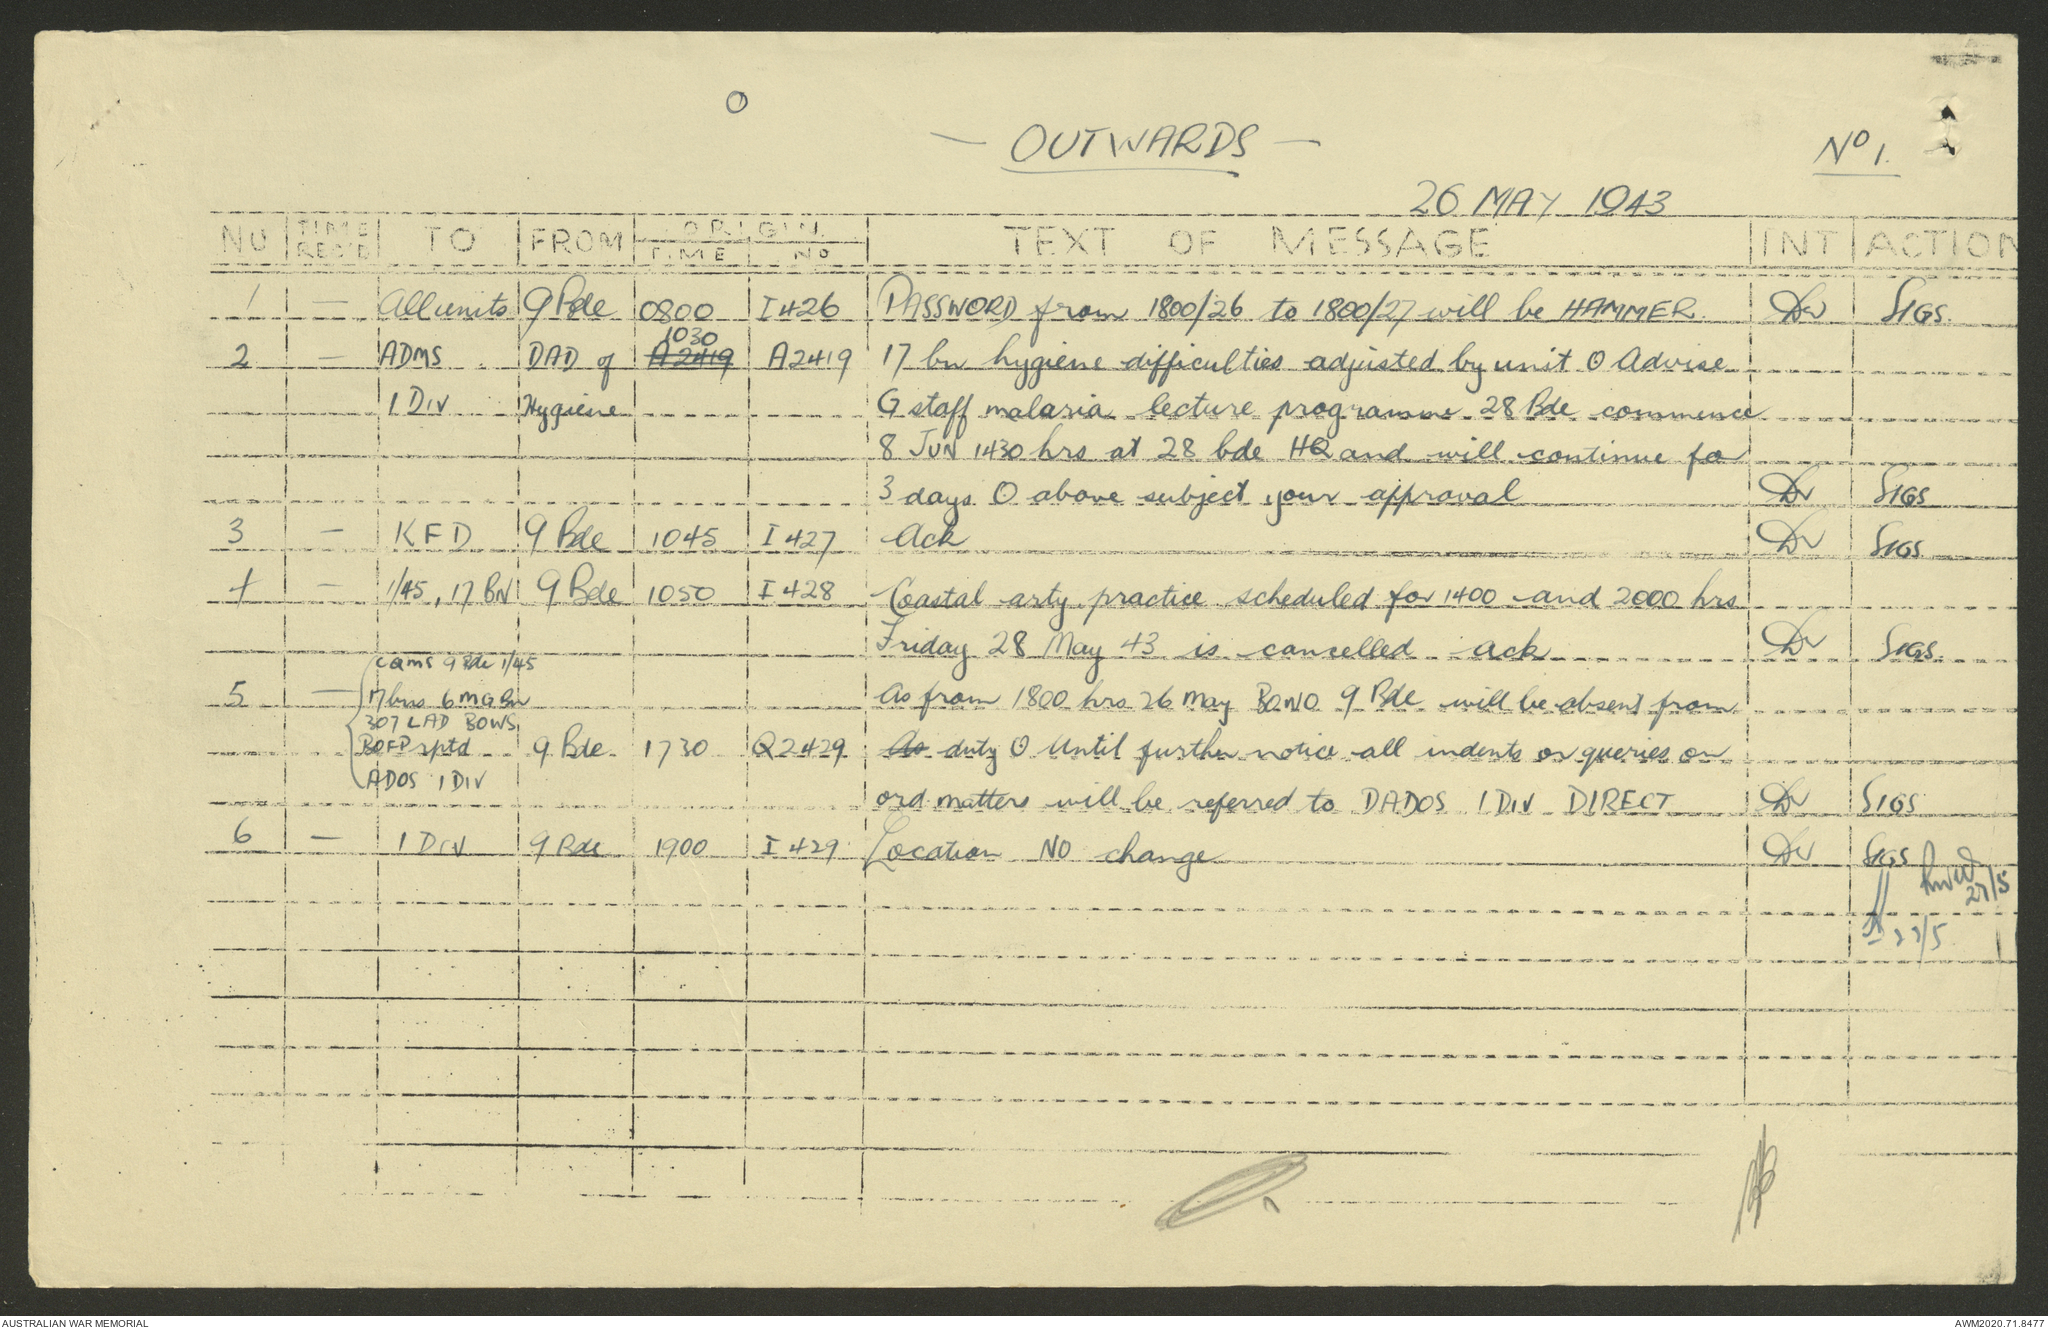 — OUTWARDS —
Nº 1.
26 MAY 1943
NU TIME REC'D TO FROM ORIGIN. TIME NO TEXT OF MESSAGE INT ACTION
1 — All units 9 Bde 0800 I 426 PASSWORD from 1800/26 to 1800/27 will be HAMMER. SIGS.
1030
2 — ADMS DAD of A2419 A2419 17 bn hygiene difficulties adjusted by unit O Advise
1 DIV Hygiene G staff malaria lecture programme 28 Bde commence
8 JUN 1430 hrs at 28 bde HQ and will continue for
3 days. O above subject your approval SIGS
3 — KFD 9 Bde 1045 I 427 Ack SIGS
4 — 1/45, 17 BN 9 Bde 1050 I 428 Coastal arty practice scheduled for 1400 and 2000 hrs
Friday 28 May 43 is cancelled ack SIGS.
CQMS 9 Bde 1/45
5 — 17 bns 6 MG Bn As from 1800 hrs 26 May BOWO 9 Bde will be absent from
307 LAD BOWS
BOFP rptd 9 Bde 1730 Q2429 As duty O Until further notice all indents or queries on
ADOS 1 DIV
ord matters will be referred to DADOS 1 DIV DIRECT SIGS
6 — 1 DIV 9 Bde 1900 I 429 Location NO change SIGS
27/5
27/5
AUSTRALIAN WAR MEMORIAL
AWM2020.71.8477